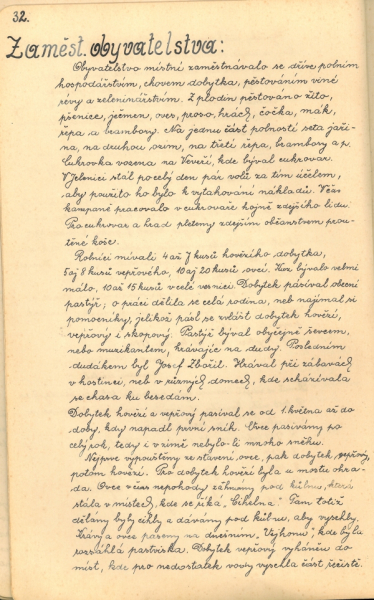 32.
Zaměst. obyvatelstva:
Obyvatelstvo místní zaměstnávalo se dříve polním
hospodářstvím, chovem dobytka, pěstováním vinné
révy a zeleninářstvím. Z plodin pěstováno žito,
pšenice, ječmen, oves, proso, hrách, čočka, mák,
řepa a brambory. Na jednu část polností seta jaři-
na, na druhou ozim, na třetí řepa, brambory a p.
Cukrovka vozena na Veveří, kde býval cukrovar.
V Jelenici stál po celý den pár volů za tím účelem,
aby použito ho bylo k vytahování nákladů. V čas
kampaně pracovalo v cukrovaře hojně zdejšího lidu.
Pro cukrovar a hrad pleteny zdejším občanstvem prou-
těné koše.
Rolníci mívali 4 až 7 kusů hovězího dobytka,
5 aj 8 kusů vepřového, 10 aj 20 kusů ovcí. Koz bývalo velmi
málo, 10 až 15 kusů v celé vesnici. Dobytek pásíval obecní
pastýř; o práci dělila se celá rodina, neb najímal si
pomocníky, jelikož pásl se zvlášť dobytek hovězí,
vepřový i skopový. Pastýř býval obyčejně ševcem,
nebo muzikantem, hrávajíc na dudy. Posledním
dudákem byl Josef Zbořil. Hrával při zábavách
v hostinci, neb v různých domech, kde scházívala
se chasa ku besedám.
Dobytek hovězí a vepřový pasíval se od 1. května až do
doby, kdy napadl první sníh. Ovce pasívány po
celý rok, tedy i v zimě nebylo-li mnoho sněhu.
Nejprve vypouštěny ze stavení ovce, pak dobytek vepřový,
potom hovězí. Pro dobytek hovězí byla u mostu ohra-
da. Ovce v čas nepohody zahnány pod kůlnu, která
stála v místech, kde se říká "Cihelna". Tam totiž
dělány byly cihly a dávány pod kůlnu, aby vyschly.
Krávy a ovce paseny na dnešním "Výhonu", kde byla
rozsáhlá pastviska. Dobytek vepřový vyháněn do
míst, kde pro nedostatek vody vyschla část řečiště.